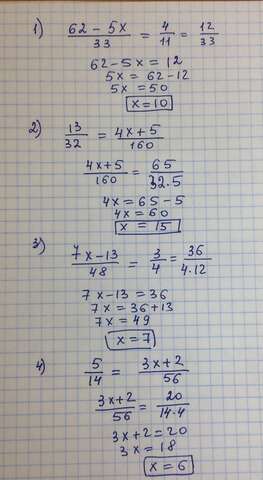 1) (62 - 5x)/33 = 4/11 = 12/33
62 - 5x = 12
5x = 62 - 12
5x = 50
x = 10
2) 13/32 = (4x + 5)/160
(4x + 5)/160 = 65/(32.5)
4x = 65 - 5
4x = 60
x = 15
3) (7x - 13)/48 = 3/4 = 36/(4.12)
7x - 13 = 36
7x = 36 + 13
7x = 49
x = 7
4) 5/14 = (3x + 2)/56
(3x + 2)/56 = 20/(14.4)
3x + 2 = 20
3x = 18
x = 6